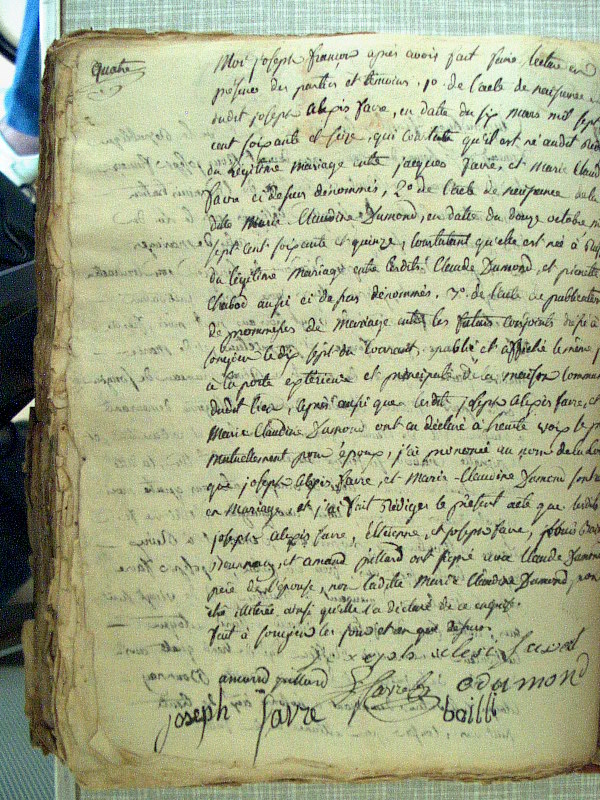 quatre
Moi joseph francoz après avoir fait faire lecture en
présence des parties et témoins, 1o. de l'acte de naissance
dudit joseph alexis favre, en date du six mars mil sept
cent soixante et seize, qui constate qu'il est né audit
du légitime mariage entre jacques favre, et marie Claud
favre ci dessus dénommés, 2o. de l'acte de naissance de la
dite Marie Claudine Dumond, en date du douze octobre
sept cent soixante et quinze, constatant qu'elle est née à
du légitime mariage entre lesdits Claude Dumond, et pierrette
Chabod aussi ci dessus dénommés, 3o. de l'acte de publication
de promesses de mariage entre les futurs conjoints
le dix sept du courant, publié et affiché le même
à la porte extérieure et principale de la maison commun
dudit lieu, aussi que ledit joseph alexis favre, et
Marie Claudine Dumond ont eu déclaré à haute voix se
mutuellement pour époux, j'ai prononcé au nom de la loi
que joseph alexis favre, et Marie Claudine Dumond sont
en mariage, et j'ai fait rédiger le présent acte que lesdits
joseph alexis favre, Etienne, et joseph favre,
et amand juillard ont signé avec Claude Dumond
père de l'épouse, non ladite Marie Claudine Dumond, pour
être illiterée ainsi qu'elle l'a déclaré de ce enquise.
fait à les jour et an que dessus.
joseph alexi favre
amand juillard favre cdumond
joseph favre bailli